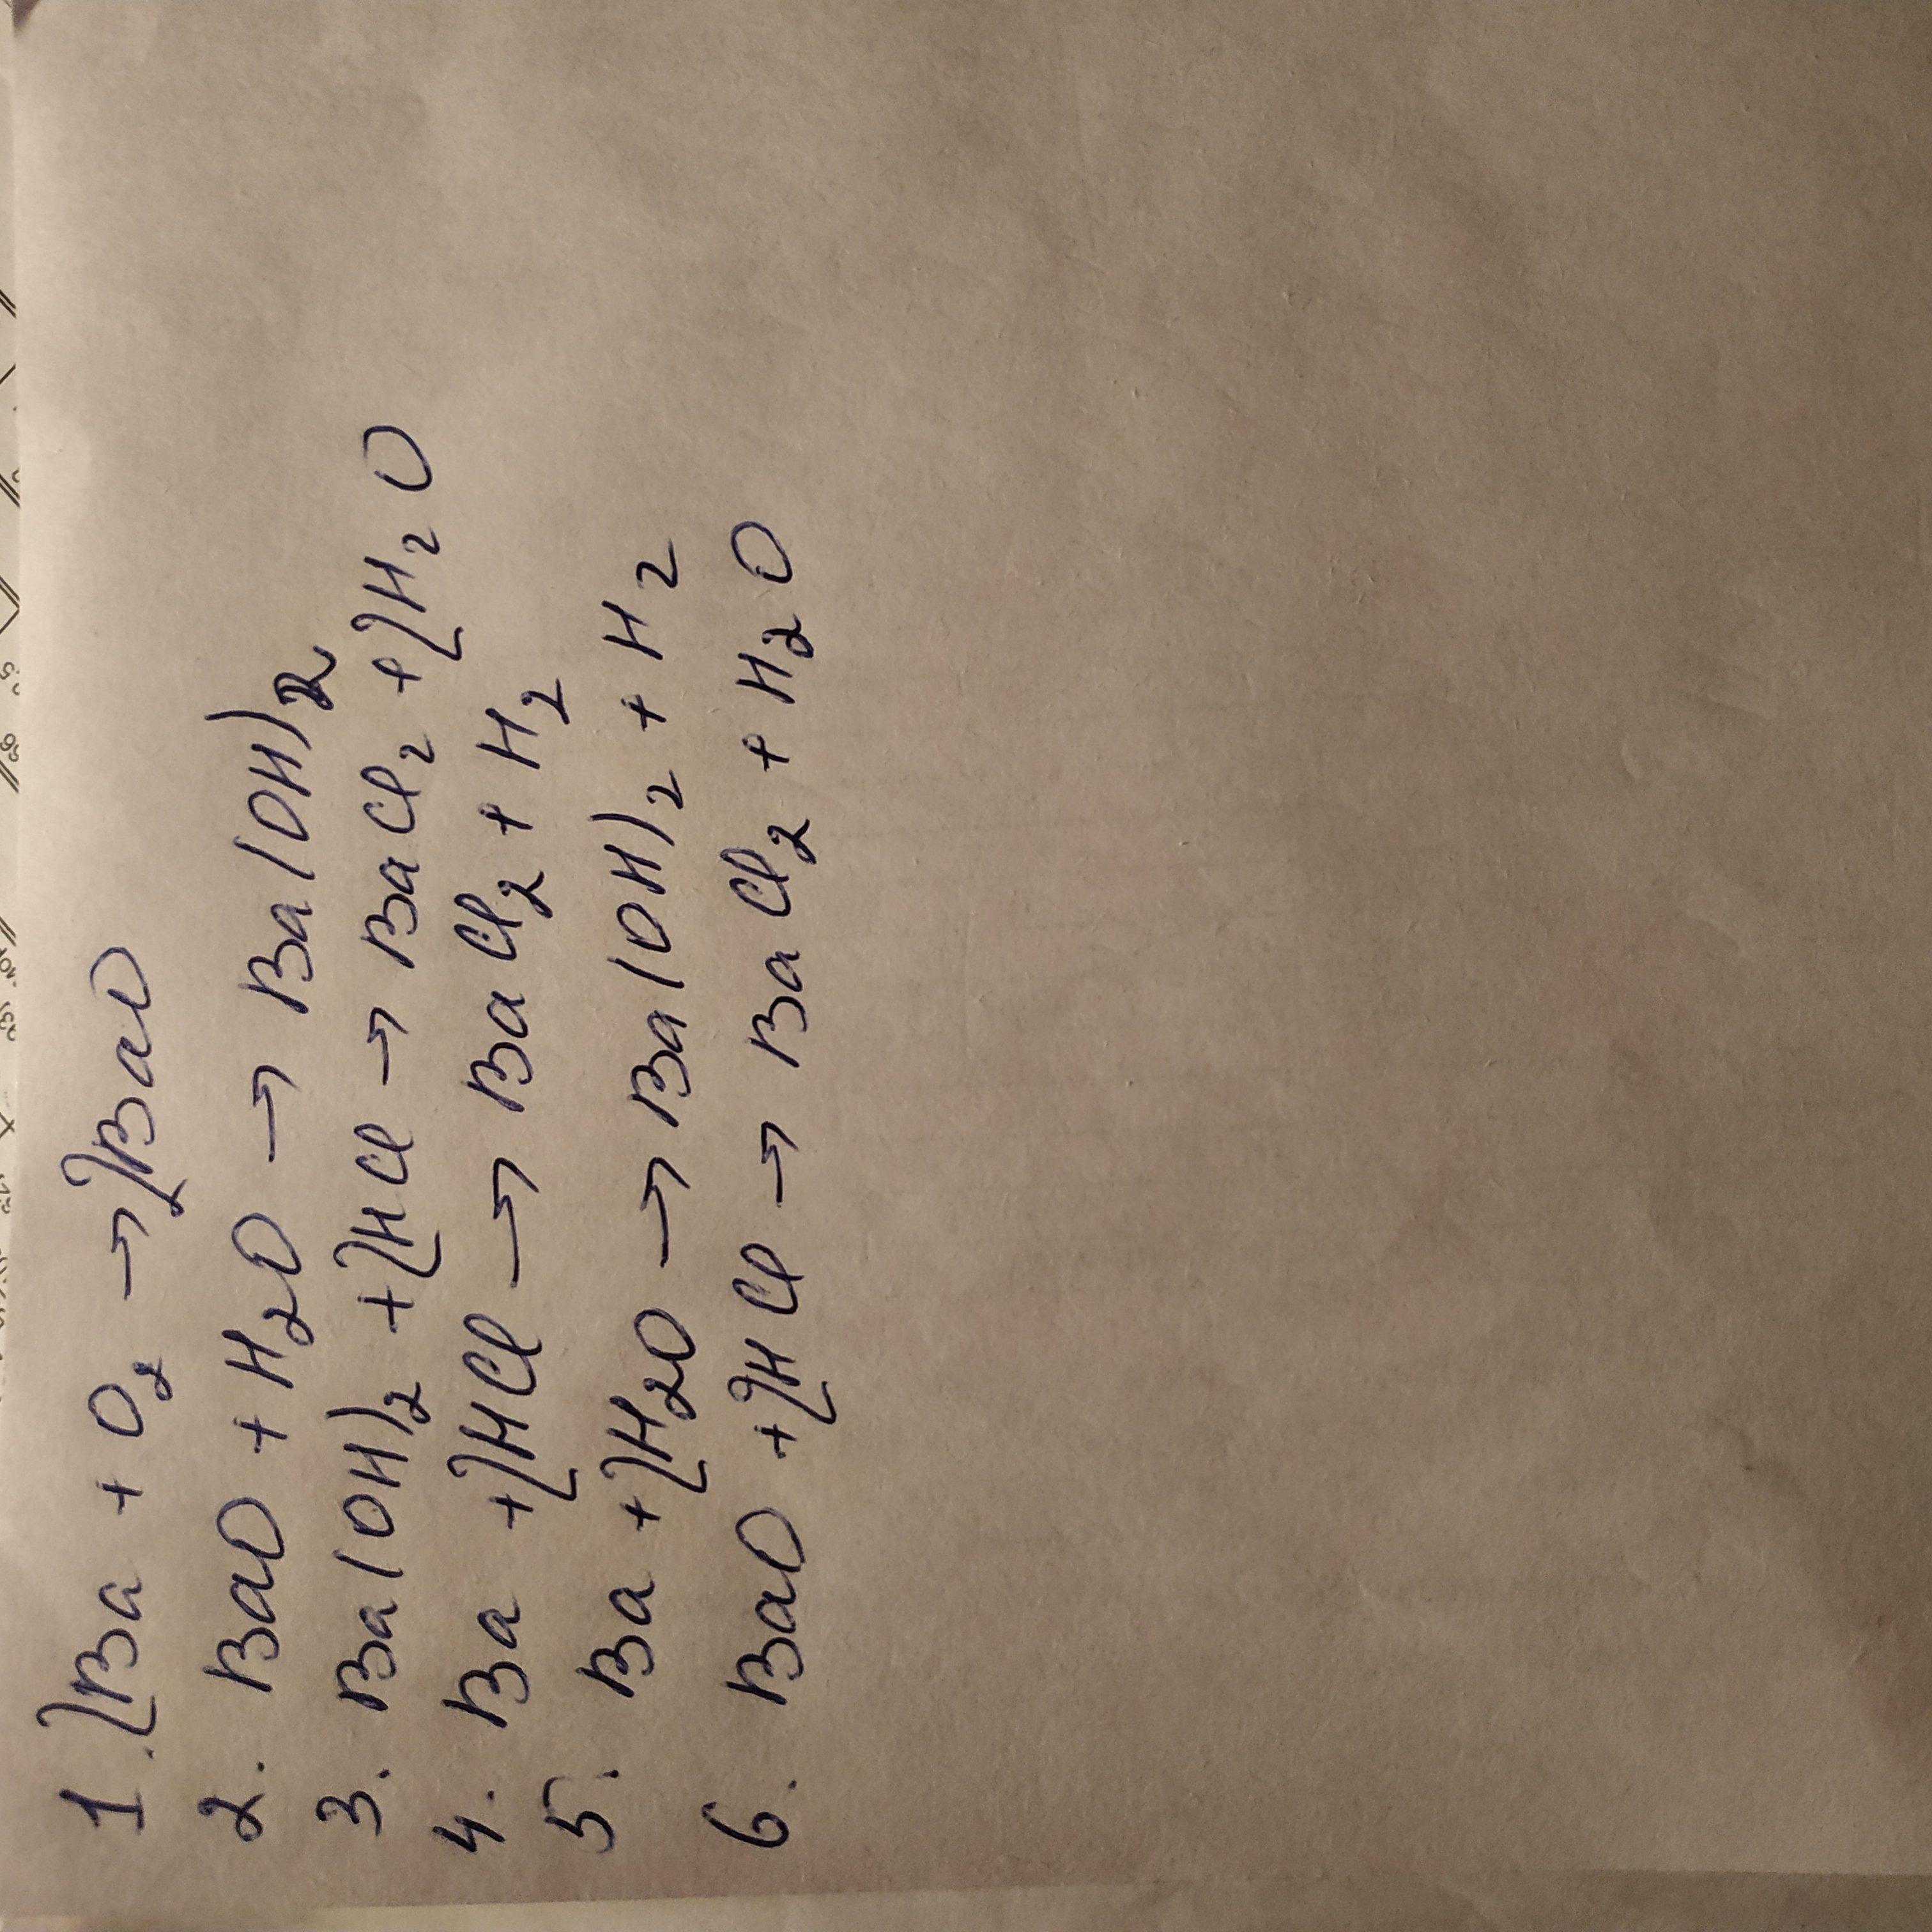 1. 2Ba + O₂ → 2BaO
2. BaO + H₂O → Ba(OH)₂
3. Ba(OH)₂ + 2HCl → BaCl₂ + 2H₂O
4. Ba + 2HCl → BaCl₂ + H₂
5. Ba + 2H₂O → Ba(OH)₂ + H₂
6. BaO + 2HCl → BaCl₂ + H₂O